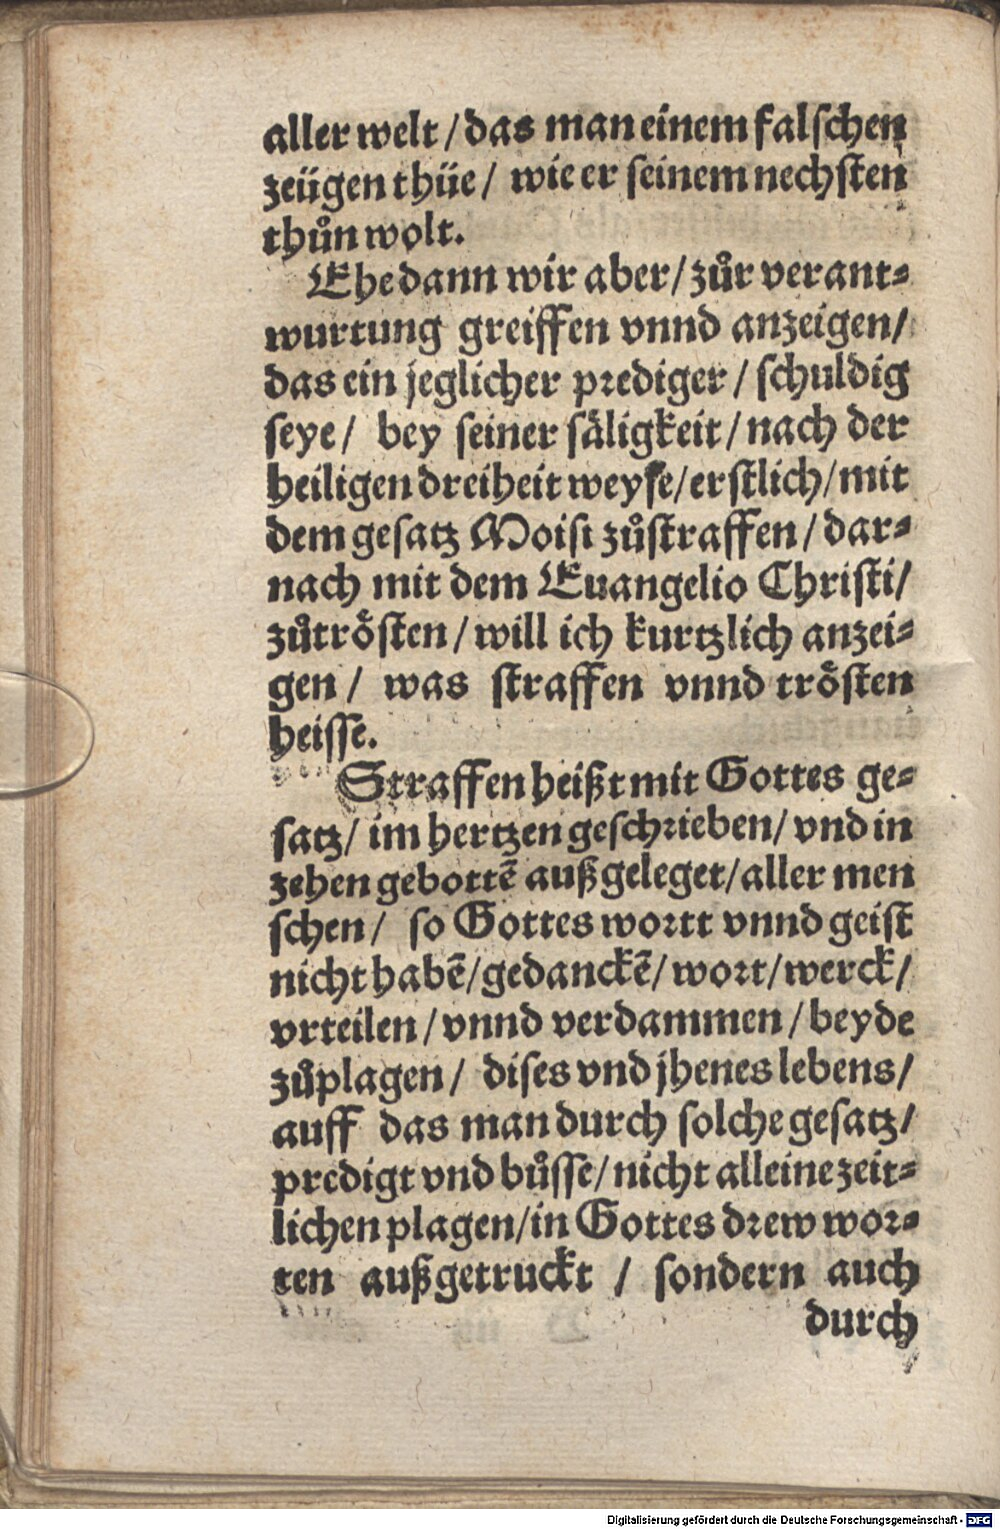 aller welt / das man einem falſchen
zeügen thüe / wie er ſeinem nechſten
thůn wolt.
Ehe dann wir aber / zůr verant⸗
wurtung greiffen vnnd anzeigen /
das ein jeglicher prediger / ſchuldig
ſeye / bey ſeiner ſäligkeit / nach der
heiligen dreiheit weyſe / erſtlich / mit
dem geſatz Moiſi zůſtraffen / dar⸗
nach mit dem Euangelio Chriſti /
zůtröſten / will ich kurtzlich anzei⸗
gen / was ſtraffen vnnd tröſten
heiſſe.
Straffen heißt mit Gottes ge⸗
ſatz / im hertzen geſchrieben / vnd in
zehen gebottē außgeleget / aller men
ſchen / ſo Gottes wortt vnnd geiſt
nicht habē / gedanckē / wort / werck /
vrteilen / vnnd verdammen / beyde
zůplagen / diſes vnd jhenes lebens /
auff das man durch ſolche geſatz /
predigt vnd bůſſe / nicht alleine zeit⸗
lichen plagen / in Gottes drew wor⸗
ten außgetruckt / ſondern auch
durch
Digitalisierung gefördert durch die Deutsche Forschungsgemeinschaft - DFG